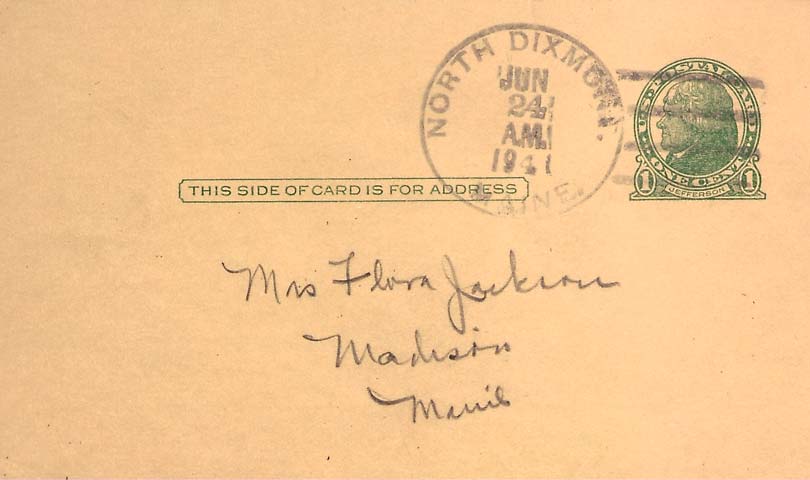 NORTH DIXMONT.
JUN
24
A.M.
1941
MAINE.
U.S. POSTAL CARD
ONE CENT
1 JEFFERSON 1
THIS SIDE OF CARD IS FOR ADDRESS
Mrs Flora Jackson
Madison
Maine